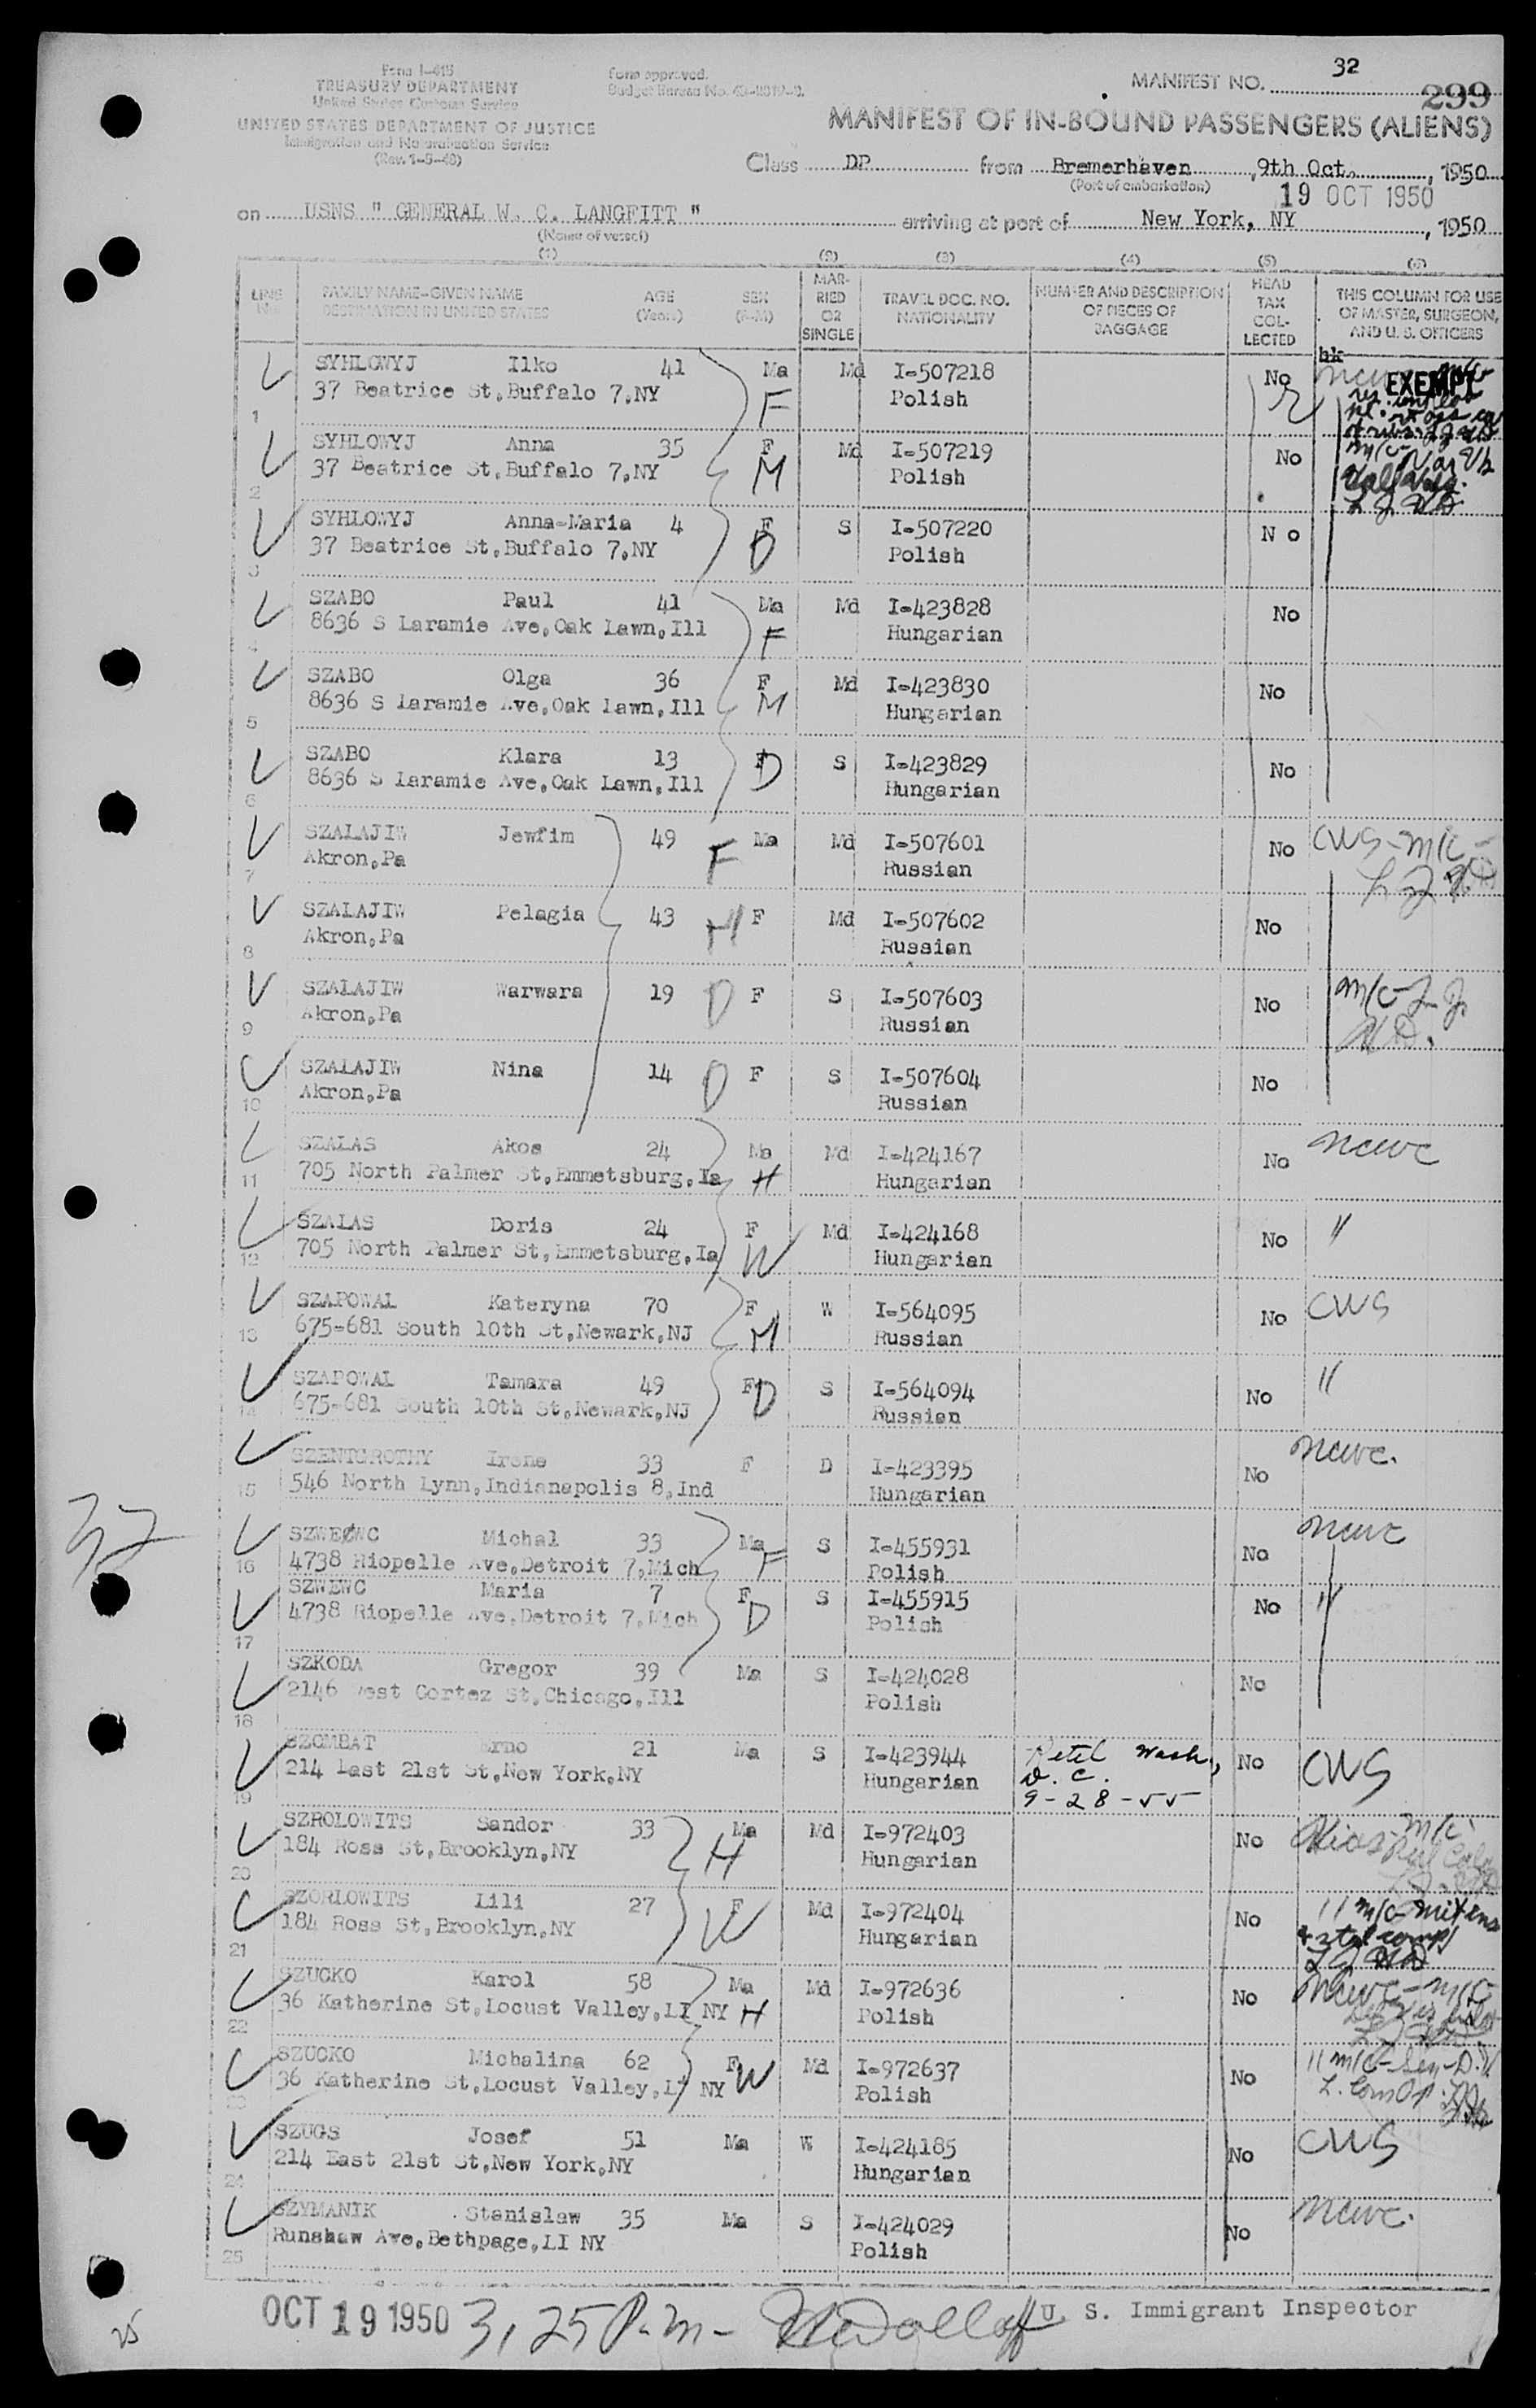 Form I-415
TREASURY DEPARTMENT
United States Customs Service
UNITED STATES DEPARTMENT OF JUSTICE
Immigration and Naturalization Service
(Rev. 1-5-48)
Form approved.
Budget Bureau No.
MANIFEST NO. 32
299
MANIFEST OF IN-BOUND PASSENGERS (ALIENS)
Class DP from Bremerhaven, 9th Oct., 1950
(Port of embarkation)
19 OCT 1950
on USNS " GENERAL W. C. LANGFITT " arriving at port of New York, NY, 1950
(Name of vessel)
(1) (2) (3) (4) (5) (6)
LINE No. FAMILY NAME-GIVEN NAME DESTINATION IN UNITED STATES AGE (Years) SEX (F-M) MARRIED OR SINGLE TRAVEL DOC. NO. NATIONALITY NUMBER AND DESCRIPTION OF PIECES OF BAGGAGE HEAD TAX COLLECTED THIS COLUMN FOR USE OF MASTER, SURGEON, AND U. S. OFFICERS
SYHLOWYJ Ilko 41 Ma Md I-507218 No EXEMPT
1 37 Beatrice St,Buffalo 7,NY F Polish
SYHLOWYJ Anna 35 F Md I-507219 No
2 37 Beatrice St,Buffalo 7,NY M Polish
SYHLOWYJ Anna-Maria 4 F S I-507220 N o
3 37 Beatrice St,Buffalo 7,NY D Polish
SZABO Paul 41 Ma Md I-423828 No
4 8636 S Laramie Ave,Oak Lawn,Ill F Hungarian
SZABO Olga 36 F Md I-423830 No
5 8636 S Laramie Ave,Oak Lawn,Ill M Hungarian
SZABO Klara 13 F S I-423829 No
6 8636 S Laramie Ave,Oak Lawn,Ill D Hungarian
SZALAJIW Jewfim 49 F Ma Md I-507601 No CWS-m/c-
7 Akron,Pa Russian
SZALAJIW Pelagia 43 M F Md I-507602 No
8 Akron,Pa Russian
SZALAJIW Warwara 19 D F S I-507603 No m/c-
9 Akron,Pa Russian
SZALAJIW Nina 14 D F S I-507604 No
10 Akron,Pa Russian
SZALAS Akos 24 Ma Md I-424167 No ncwc
11 705 North Palmer St,Emmetsburg,Ia H Hungarian
SZALAS Doris 24 F Md I-424168 No "
12 705 North Palmer St,Emmetsburg,Ia W Hungarian
SZAPOWAL Kateryna 70 F W I-564095 No CWS
13 675-681 South 10th St,Newark,NJ M Russian
SZAPOWAL Tamara 49 F S I-564094 No "
14 675-681 South 10th St,Newark,NJ D Russian
SZENTGROTHY Irene 33 F D I-423395 No ncwc.
15 546 North Lynn,Indianapolis 8,Ind Hungarian
SZWEWC Michal 33 Ma S I-455931 No ncwc
16 4738 Riopelle Ave,Detroit 7,Mich F Polish
SZWEWC Maria 7 F S I-455915 No "
17 4738 Riopelle Ave,Detroit 7,Mich D Polish
SZKODA Gregor 39 Ma S I-424028 No
18 2146 West Cortez St,Chicago,Ill Polish
SZOMBAT Erno 21 Ma S I-423944 Wash, No CWS
19 214 East 21st St,New York,NY Hungarian D. C.
9-28-55
SZROLOWITS Sandor 33 Ma Md I-972403 No Hias-m/c
20 184 Ross St,Brooklyn,NY H Hungarian
SZORLOWITS Lili 27 F Md I-972404 No " m/c
21 184 Ross St,Brooklyn,NY W Hungarian
SZUCKO Karol 58 Ma Md I-972636 No ncwc-m/c-
22 36 Katherine St,Locust Valley,LI NY H Polish
SZUCKO Michalina 62 F Md I-972637 No " m/c-Sen-
23 36 Katherine St,Locust Valley,LI NY W Polish
SZUGS Josef 51 Ma W I-424185 No CWS
24 214 East 21st St,New York,NY Hungarian
SZYMANIK Stanislaw 35 Ma S I-424029 No ncwc.
25 Runshaw Ave,Bethpage,LI NY Polish
OCT 19 1950 3,25 P.m- U. S. Immigrant Inspector
25